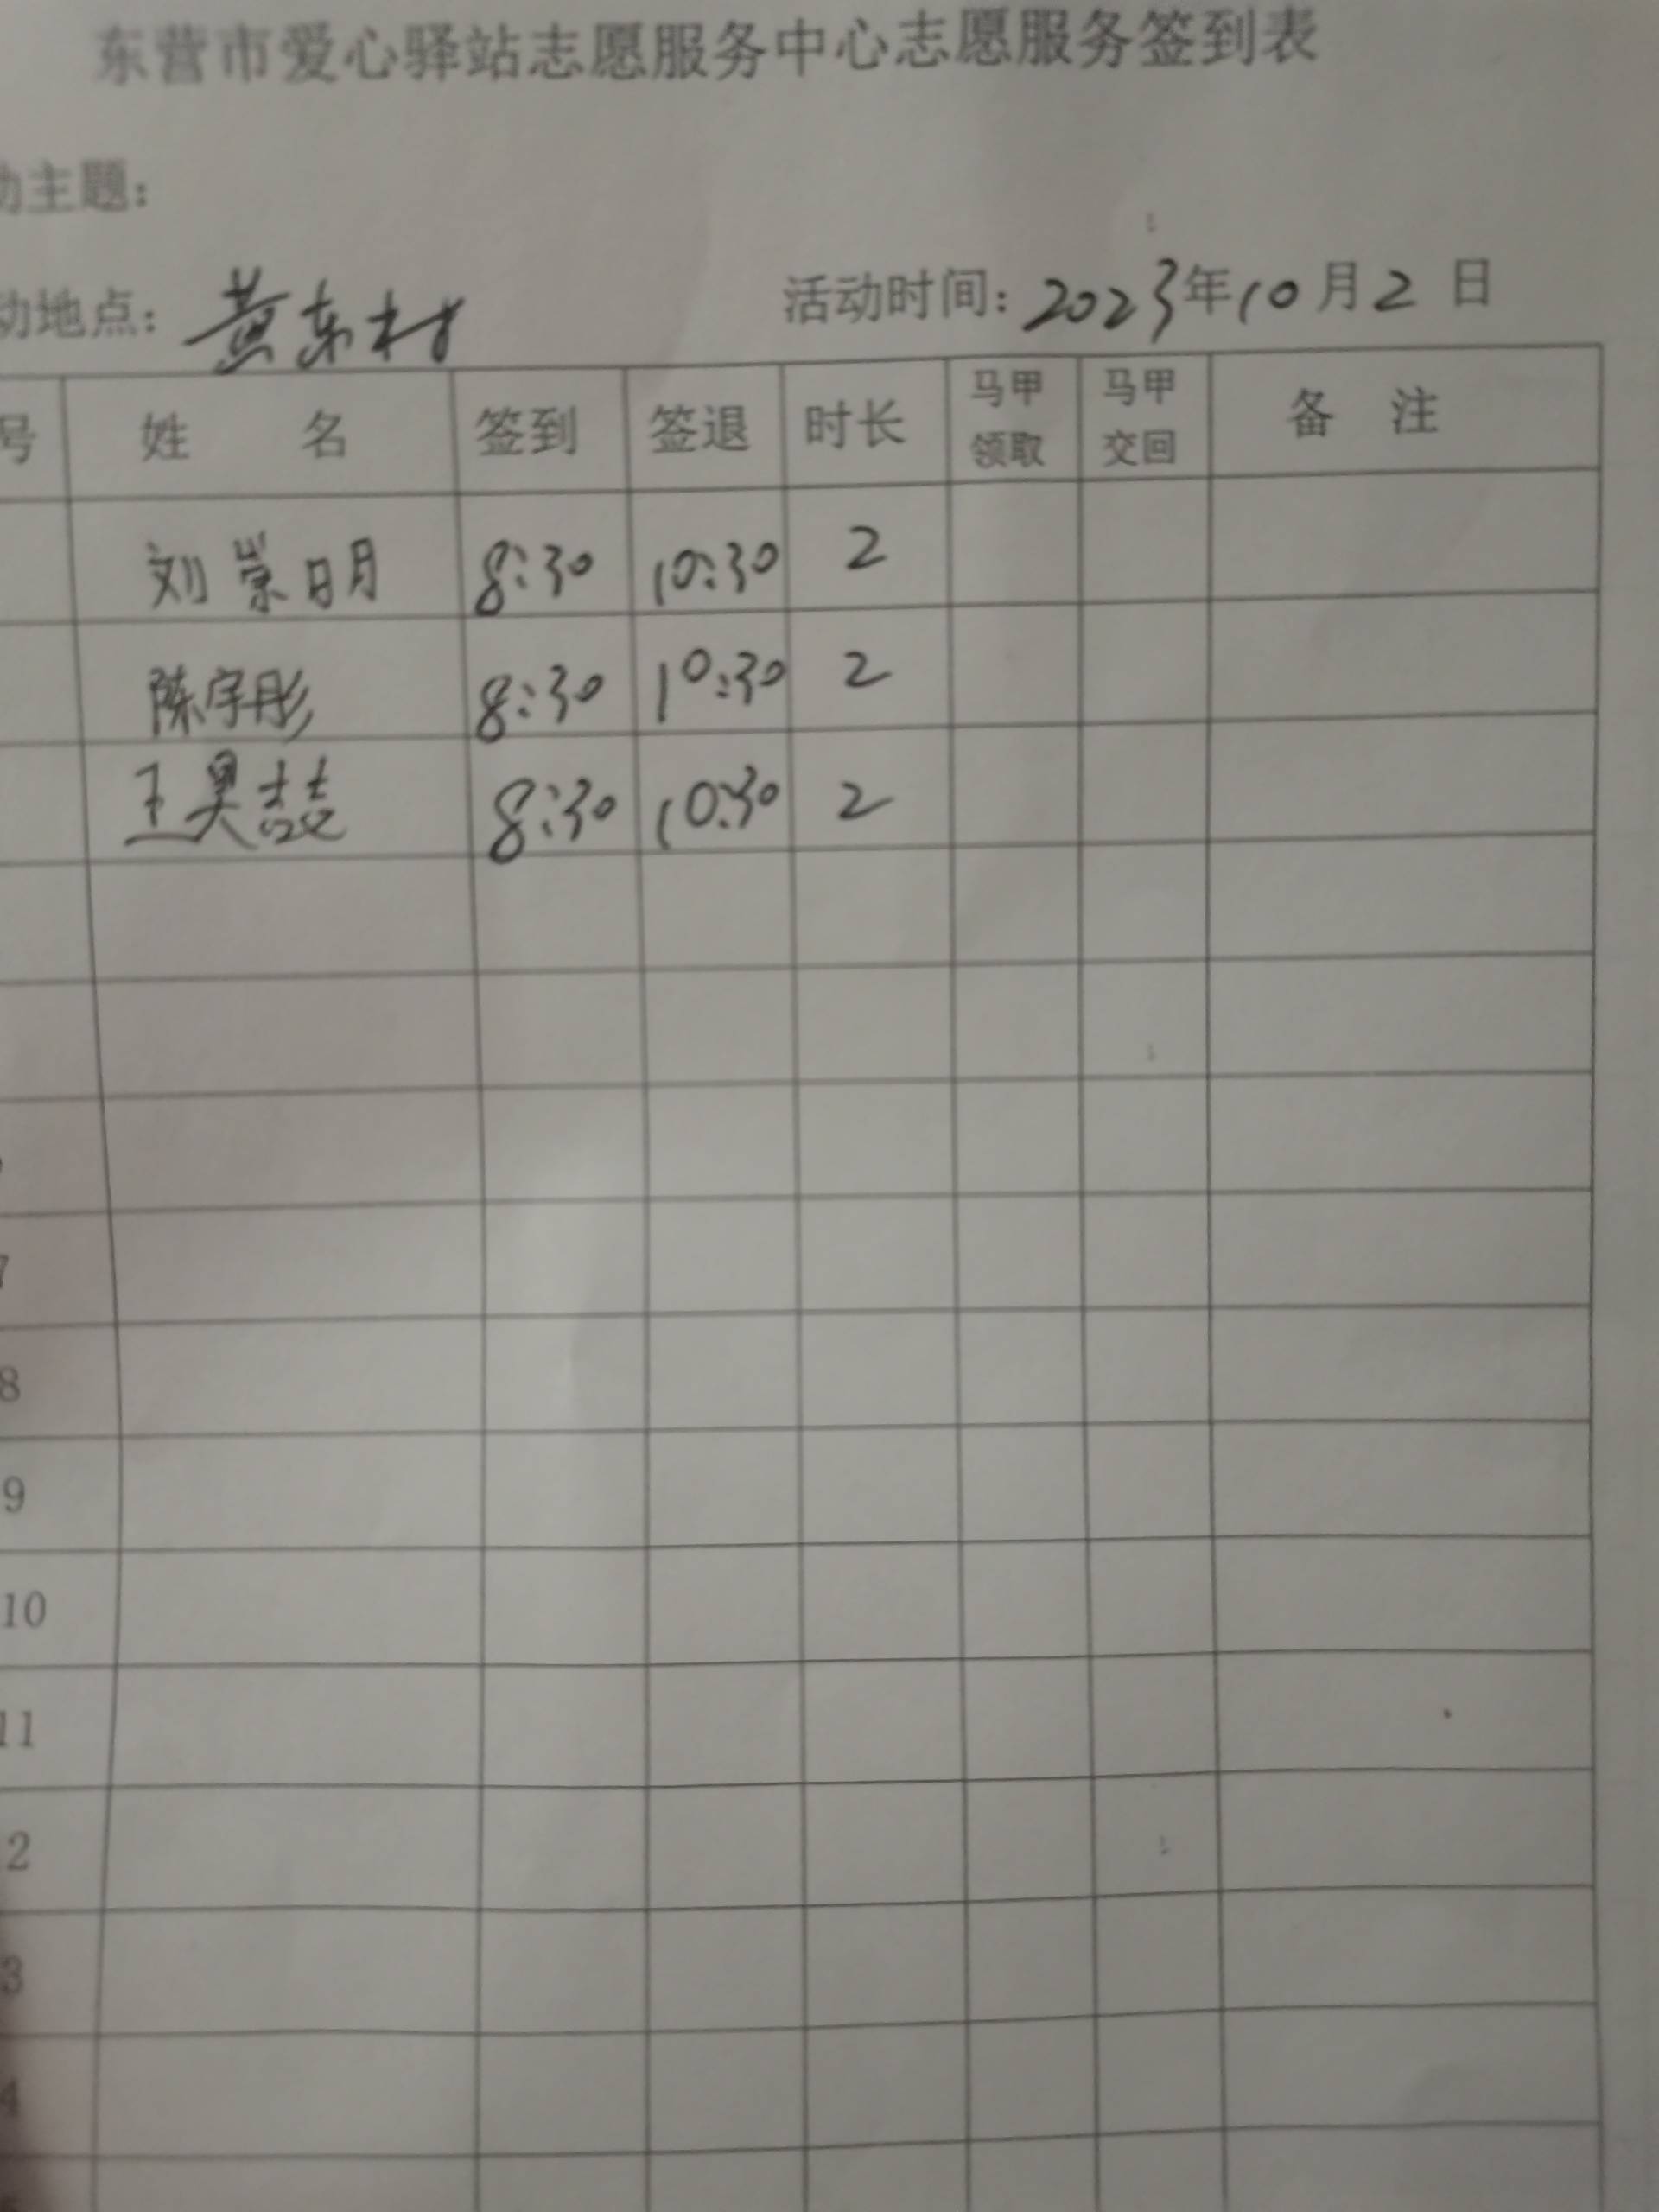 东营市爱心驿站志愿服务中心志愿服务签到表
动主题：
动地点：黄东村 活动时间：2023年10月2日
号 姓 名 签到 签退 时长 马甲领取 马甲交回 备 注
刘崇明 8:30 10:30 2
陈宇彤 8:30 10:30 2
王昊喆 8:30 10:30 2
7
8
9
10
11
2
3
4